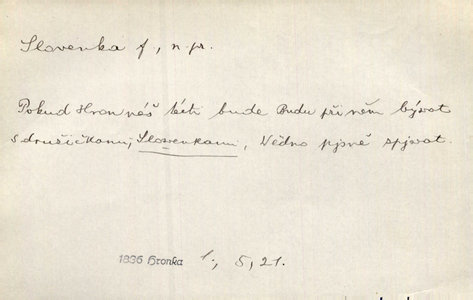 Slovenka f, n. pr.
Pokud Hron náš téci bude Budu při něm bývat
s družičkami, Slovenkami, Vědno pjsně spjvat.
1836 Hronka I., 5, 21.